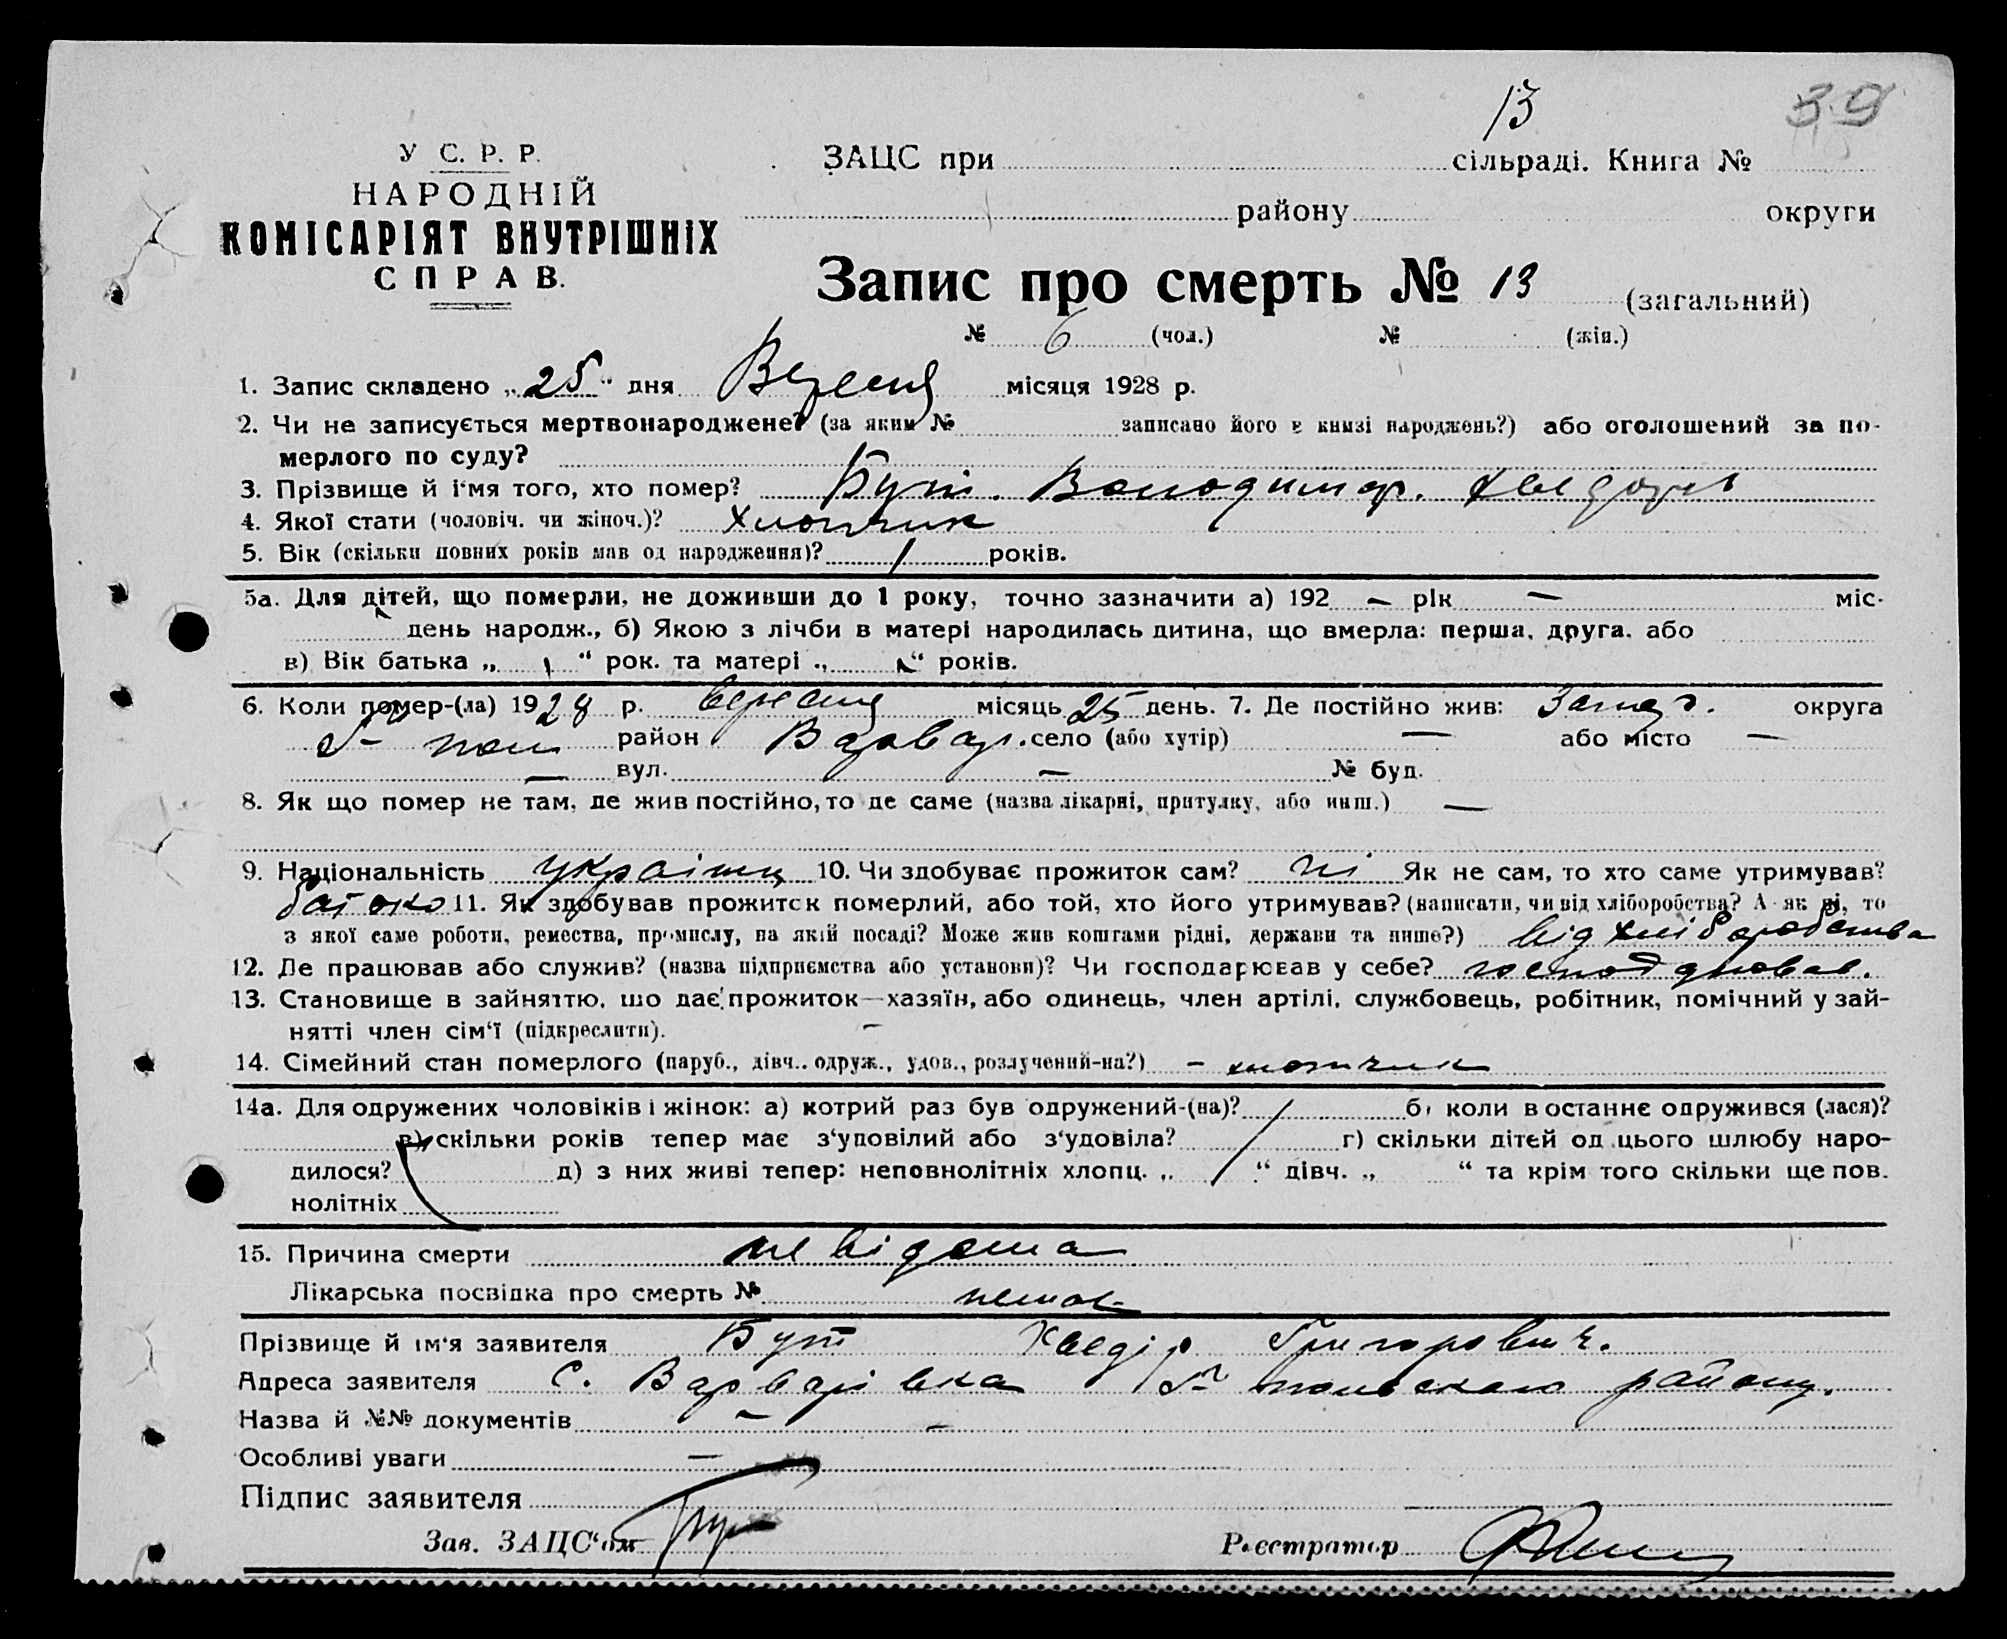 13
39
У С. Р. Р.
НАРОДНІЙ
КОМІСАРІЯТ ВНУТРІШНІХ
СПРАВ.
ЗАЦС при сільраді. Книга №
району округи
Запис про смерть № 13 (загальний)
№ 6 (чол.) № (жін.)
1. Запис складено „25“ дня Вересня місяця 1928 р.
2. Чи не записується мертвонароджене? (за яким № записано його в книзі народжень?) або оголошений за по-
мерлого по суду?
3. Прізвище й і'мя того, хто помер? Бут. Володимир.
4. Якої стати (чоловіч. чи жіноч.)? хлопчик
5. Вік (скільки повних років мав од народження)? 1 років.
5а. Для дітей, що померли, не доживши до 1 року, точно зазначити а) 192 — рік — міс.
день народж., б) Якою з лічби в матері народилась дитина, що вмерла: перша, друга, або
в) Вік батька „ “ рок. та матері „ “ років.
6. Коли помер-(ла) 1928 р. вересня місяць 25 день. 7. Де постійно жив: округа
район Варвар. село (або хутір) — або місто —
— вул. — № буд.
8. Як що помер не там, де жив постійно, то де саме (назва лікарні, притулку, або инш.) —
9. Національність українц 10. Чи здобуває прожиток сам? ні Як не сам, то хто саме утримував?
батько 11. Як здобував прожиток померлий, або той, хто його утримував? (написати, чи від хліборобства? А як ні, то
з якої саме роботи, ремества, промислу, на якій посаді? Може жив коштами рідні, держави та инше?) від хліборобства
12. Де працював або служив? (назва підприємства або установи)? Чи господарював у себе?
13. Становище в зайняттю, що дає прожиток—хазяїн, або одинець, член артілі, службовець, робітник, помічний у зай-
нятті член сім'ї (підкреслити). —
14. Сімейний стан померлого (паруб., дівч.. одруж., удов., розлучений-на?) – хлопчик
14а. Для одружених чоловіків і жінок: а) котрий раз був одружений-(на)? б) коли востаннє одружився (лася)?
в) скільки років тепер має з'уповілий або з'удовіла? г) скільки дітей од цього шлюбу наро-
дилося? д) з них живі тепер: неповнолітніх хлопц. „ “ дівч. „ “ та крім того скільки ще пов.
нолітніх
15. Причина смерти невідома
Лікарська посвідка про смерть № немає
Прізвище й ім'я заявителя Бут Хведір Григорович.
Адреса заявителя С. Варварівка району.
Назва й №№ документів — —
Особливі уваги —
Підпис заявителя
Зав. ЗАЦС'ом
Реєстратор